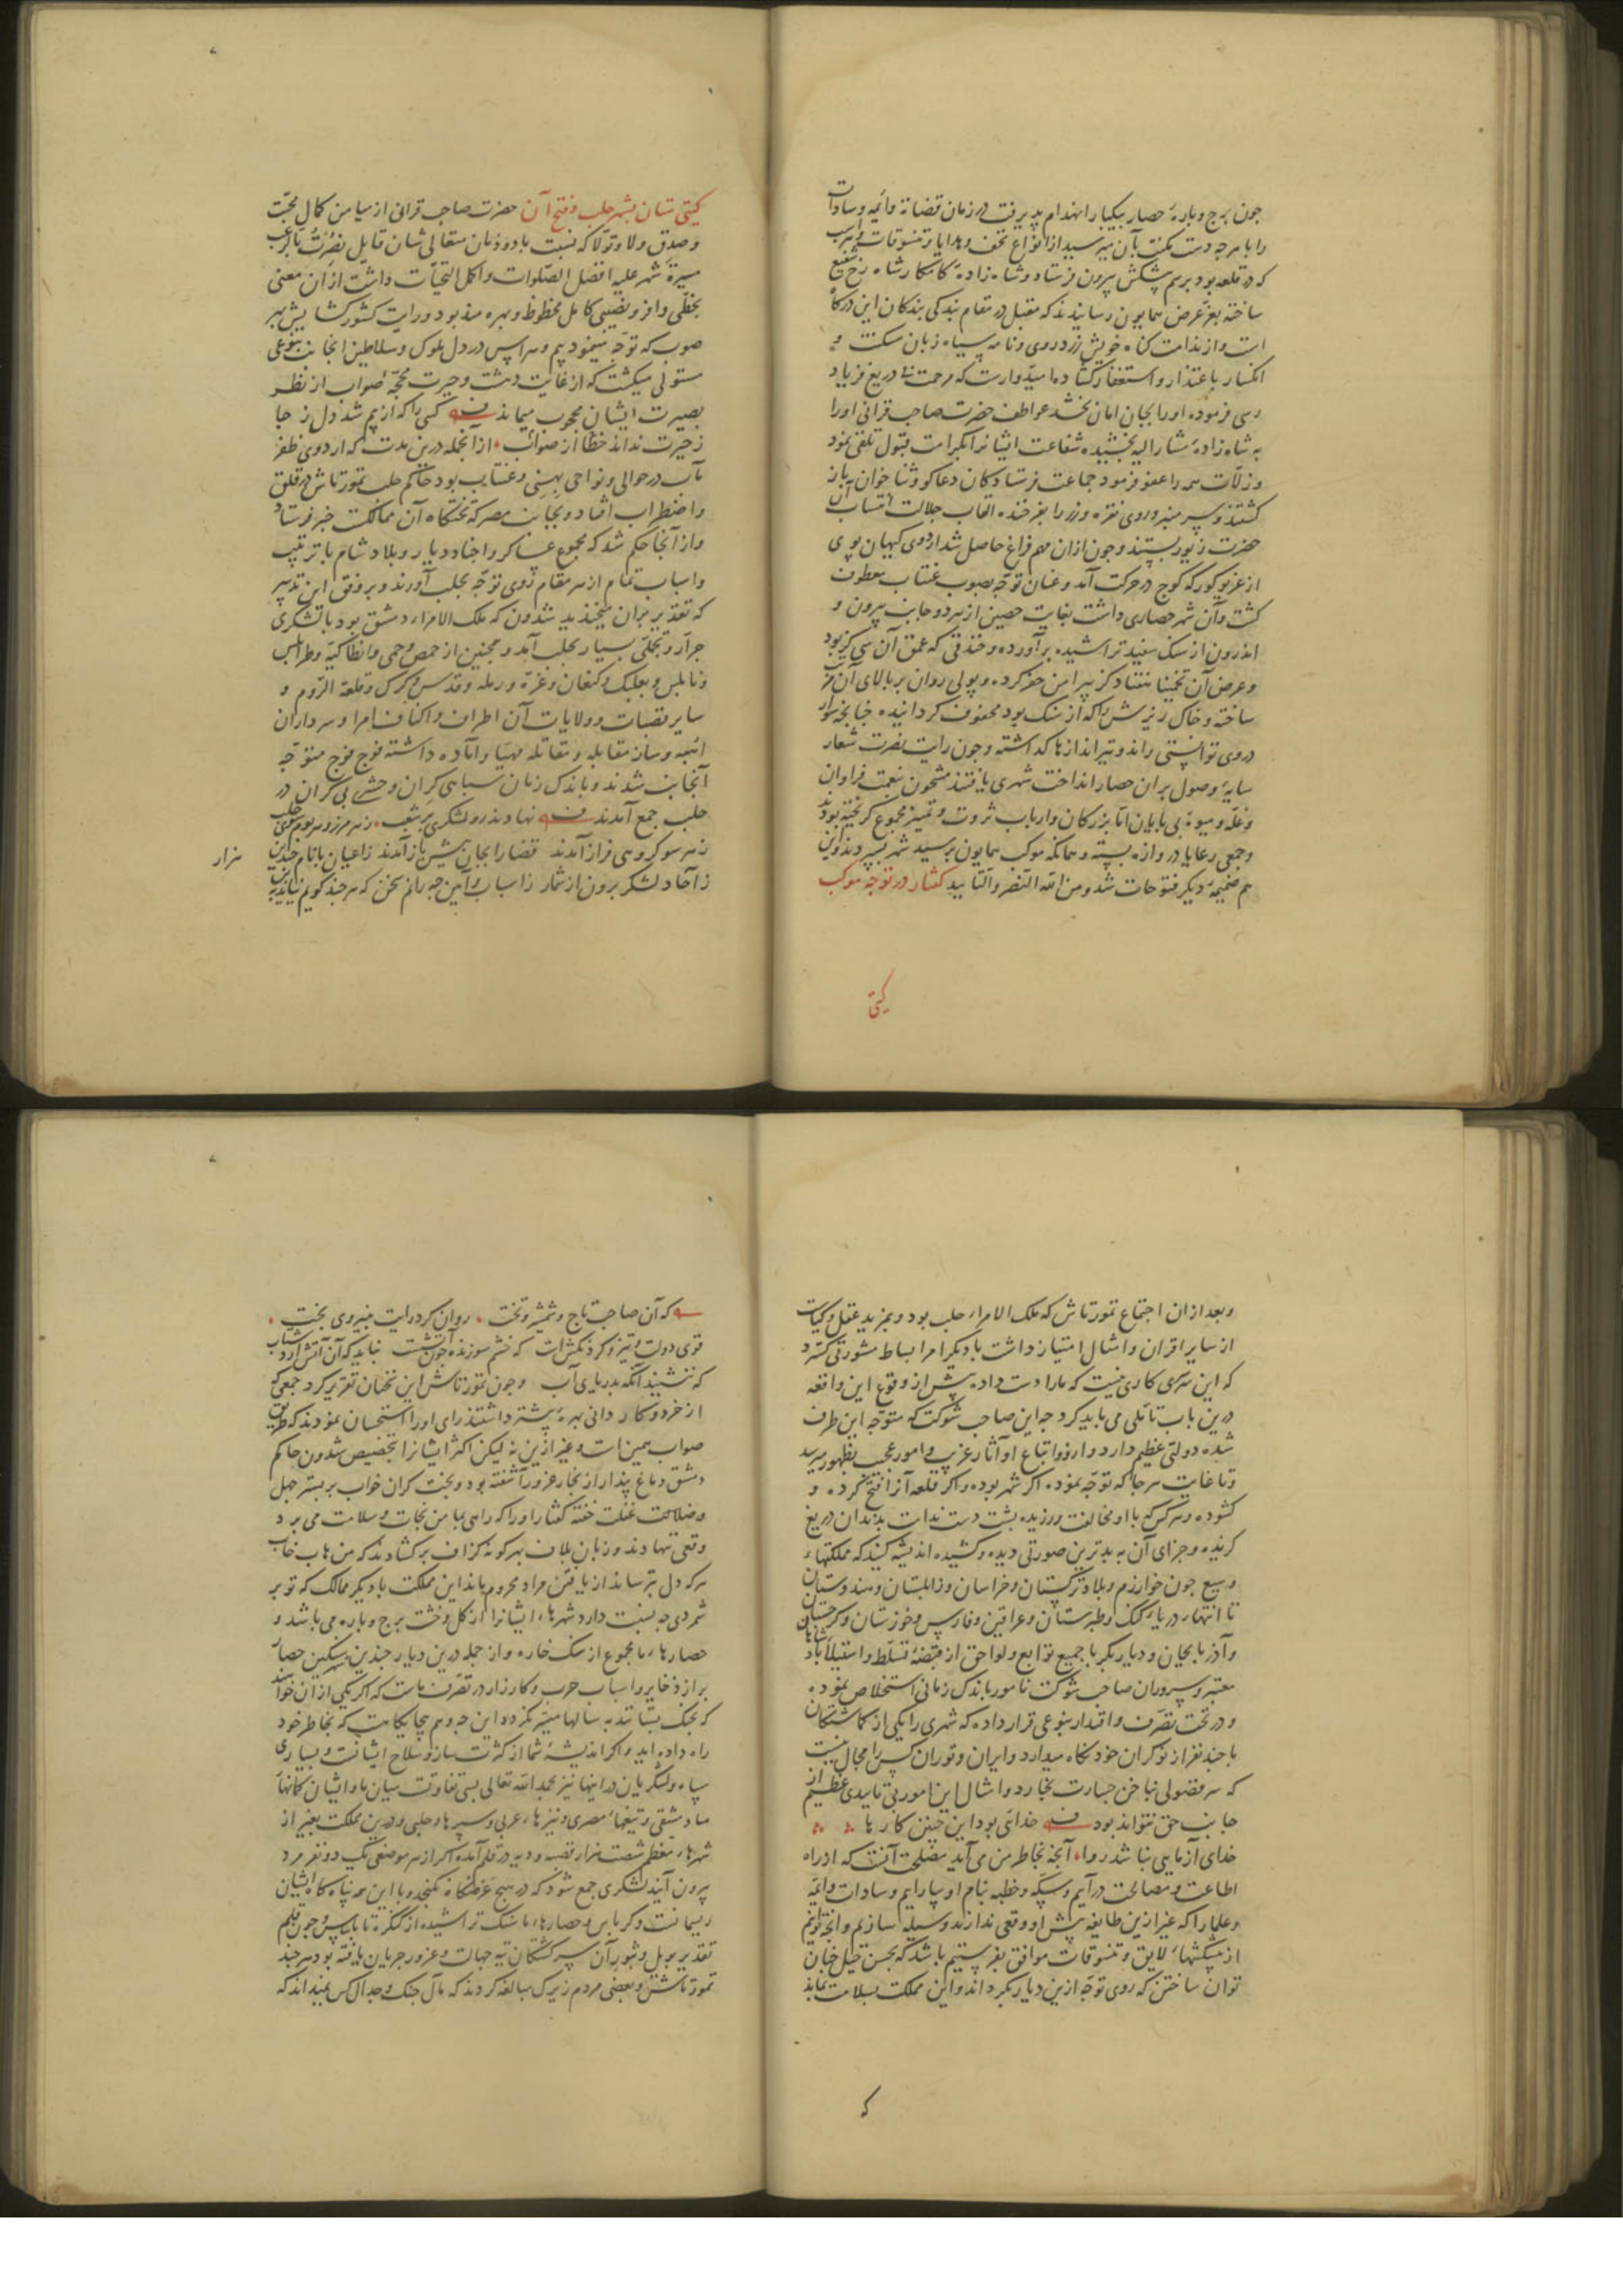 چون برج و بارهٔ حصار بیکبار انهدام پذیرفت در زمان قضاة و ائمه و سادات
را با هرچه دست مکنت بآن میرسید از انواع تحف و هدایا و تنسوقات و
که در قلعه بود برسم پیشکش بیرون فرستاد و شاه زادهٔ کامکار شاه رخ شفیع
ساخته بعزّ عرض همایون رسانیدند که مقبل در مقام بندکی بندکان این درکاه
است و از ندامت کناه خویش زرد روی و نامه سیاه زبان مسکنت و
انکسار باعتذار و استغفار کشاده امیدوارست که مرحمت بی دریغ فریاد
رسی فرموده او را بجان امان بخشد عواطف حضرت صاحب قرانی او را
به شاه زادهٔ مشار الیه بخشیده شفاعت ایشانرا بکرامت قبول تلقی نمود
و زلّات همه را عفو فرمود جماعت فرستادکان دعاکو و ثنا خوان باز
کشتند و سر منبر و روی نقره و زر را بفرخنده القاب جلالت انتساب آن
حضرت زیور بستند و چون ازان مهم فراغ حاصل شد اردوی کیهان پوی
از غریو کورکه کوچ در حرکت آمد و عنان توجّه بصوب عنتاب معطوف
کشت و آن شهر حصاری داشت بغایت حصین از هر دو جانب بیرون و
اندرون از سنک سفید تراشیده برآورده و خندقی که عمق آن سی کز بود
و عرض آن تخمینا هفتاد کز پیرامن حفر کرده و پولی روان بر بالای آن
ساخته و خاک ریزش را که از سنک بود محفوف کردانیده چنانچه سوار
در وی توانستی راند و تیراندازها کذاشته و چون رایت نصرت شعار
سایهٔ وصول بران حصار انداخت شهری یافتند مشحون بنعمت فراوان
و غلّه و میوهٔ بی پایان امّا بزرکان و ارباب ثروت و تمیز مجموع کریخته بودند
و جمعی رعایا دروازه بسته و همانکه موکب همایون برسید شهر بسپردند و این
هم ضمیمهٔ دیکر فتوحات شد و من الله النصر و التأیید کفتار در توجّه موکب
کیتی
کیتی ستان بشهر حلب و فتح آن حضرت صاحب قرانی از میامن کمال محبّت
و صدق ولا و تولّا که نسبت با دودمان متعالی شان قایل نصرت بالرعب
مسیرة شهر علیه افضل الصلوات و اکمل التحیّات داشت از آن معنی
بحظّی وافر و نصیبی کامل محظوظ و بهره مند بود و رایت کشور کشایش بهر
صوب که توجّه مینمود بیم و هراس در دل ملوک و سلاطین آنجانب بنوعی
مستولی میکشت که از غایت دهشت و حیرت محجّهٔ صواب از نظر
بصیرت ایشان محجوب میماند کسی را که از بیم شد دل ز جا
ز حیرت نداند خطا از صواب ازانجمله درین مدت که اردوی ظفر
مآب در حوالی و نواحی بهسنی و عنتاب بود حاکم حلب تمورتاش در قلق
و اضطراب افتاد و بجانب مصر که تختکاه آن ممالکست خبر فرستاد
و از آنجا حکم شد که مجموع عساکر و اجناد دیار و بلاد شام با ترتیب
و اسباب تمام از هر مقام روی توجّه بحلب آورند و بر وفق این تدبیر
که تقدیر بران میخندید شدون که ملک الامراء دمشق بود با لشکری
جرّار و تجملّی بسیار بحلب آمد و همچنین از حمص و حمی و انطاکیّه و طرابلس
و نابلس و بعلبک و کنعان و غزّه و رمله و قدس و کرک و قلعة الرّوم و
سایر قصبات و ولایات آن اطراف و اکناف امرا و سرداران
ابّهت و ساز مقابله و مقاتله مهیّا و آماده داشته فوج فوج متوجّه
آنجانب شدند و باندک زمان سپاهی کران و حشری بی کران در
حلب جمع آمدند نهادند رو لشکری پر شغب ز هر مرز و هر بوم سوی حلب
ز هر سو کروهی فراز آمدند قضا را بجان پیش باز آمدند ز اعیان با نام چندین
ز آحاد لشکر برون از شمار ز اسباب و آیین چه رانم سخن که هرچند کویم نیاید به بن
هزار
و بعد ازان اجتماع تمورتاش که ملک الامراء حلب بود و بمزید عقل و کیاست
از سایر اقران و امثال امتیاز داشت با دیکر امرا بساط مشورتی کسترد
که این سرسری کاری نیست که ما را دست داده پیش از وقوع این واقعه
درین باب تأمّلی می باید کرد چه این صاحب شوکت که متوجّه این طرف
شده دولتی عظیم دارد و ازو و اتباع او آثار غریب و امور عجیب بظهور میرسد
و تا غایت هرجا که توجّه نموده اکر شهر بوده و اکر قلعه آنرا فتح کرده و
کشوده و هرکس با او مخالفت ورزیده پشت دست ندامت بدندان دریغ
کزیده و جزای آن به بدترین صورتی دیده و کشیده اندیشه کنید که مملکتهاء
وسیع چون خوارزم و بلاد ترکستان و خراسان و زابلستان و هندوستان
تا انتهاء دریاء کنک و طبرستان و عراقین و فارس و خوزستان و کرجستان
و آذربایجان و دیاربکر با جمیع توابع و لواحق از قبضهٔ تسلّط و استیلاء پادشاهان
معتبر و سروران صاحب شوکت نامور باندک زمانی استخلاص نموده
و در تحت تصرّف و اقتدار بنوعی قرار داده که شهری را یکی از کماشتکان
با چند نفر از نوکران خود نکاه میدارد و ایران و توران کس را مجال نیست
که سر فضولی بناخن جسارت بخارد و امثال این امور بی تاییدی عظیم از
جانب حق نتواند بود خدای بود این چنین کارها
خدای آزمایی نباشد روا آنچه بخاطر من می آید مصلحت آنست که از راه
اطاعت و مصالحت درآییم و سکّه و خطبه بنام او بیاراییم و سادات و ایمّه
و علما را که غیر ازین طایفه پیش او وقعی ندارند وسیله سازیم و آنچه توانیم
از پیشکشهاء لایق و تنسوقات موافق بفرستیم باشد که بحسن حیل چنان
توان ساختن که روی توجّه ازین دیار بکرداند و این مملکت بسلامت بماند
که
که آن صاحب تاج و شمشیر و تخت روان کرد رایت بنیروی بخت
قوی دولت و تیز و کردنکش است که خشم سوزنده چون آتشست نباید که آن آتش آرد شتاب
که ننشیند آنکه بدریای آب و چون تمورتاش این سخنان تقریر کرد جمعی که
از خرد و کار دانی بهرهٔ بیشتر داشتند رای او را استحسان نمودند که طریق
صواب همین است و غیر ازین نه لیکن اکثر ایشانرا بتخصیص شدون حاکم
دمشق دماغ پندار از بخار غرور آشفته بود و بخت کران خواب بر بستر جهل
و ضلالت غفلت خفته کفتار او را که راهی بمأمن نجات و سلامت می برد
وقعی ننهادند و زبان بلاف بهرکونه کزاف برکشادند که من هاب خاب
هرکه دل بترساند از یافتن مراد محروم ماند این مملکت با دیکر ممالک که تو بر
شمردی چه نسبت دارد شهرهاء ایشانرا از کل و خشت برج و باره می باشد و
حصارهاء ما مجموع از سنک خاره و از جمله درین دیار چندین سنکین حصار
پر از ذخایر و اسباب حرب و کارزار در تصرّف ماست که اکر یکی از آن خواهند
که بجنک بستانند به سالها میسّر نکردد این چه وهم بیجایکاهست که بخاطر خود
راه داده اید و اکر اندیشهٔ شما از کثرت ساز و سلاح ایشانست و بسیاری
سپاه و لشکریان در اینها نیز بحمد الله تعالی بسی تفاوتست میان ما و ایشان کمانهاء
ما دمشقی و تیغهاء مصری و نیزهاء عربی و سپرهاء حلبی و درین مملکت بغیر از
شهرهاء معظم شصت هزار قصبه و دیه در قلم آمده اکر از هر موضعی یک دو نفر مرد
بیرون آیند لشکری جمع شود که در هیچ عرضکاه نکنجد و با این همه پناه کاه ایشان
ریسمانست و کرباس و حصارهاء ما سنک تراشیده از کنکره تا باساس و چون قلم
تقدیر بویل و ثبور آن سرکشتکان تیه جهالت و غرور جریان یافته بود هرچند
تمورتاش و بعضی مردم زیرک مبالغه کردند که مآل جنک و جدال کس نمیداند که